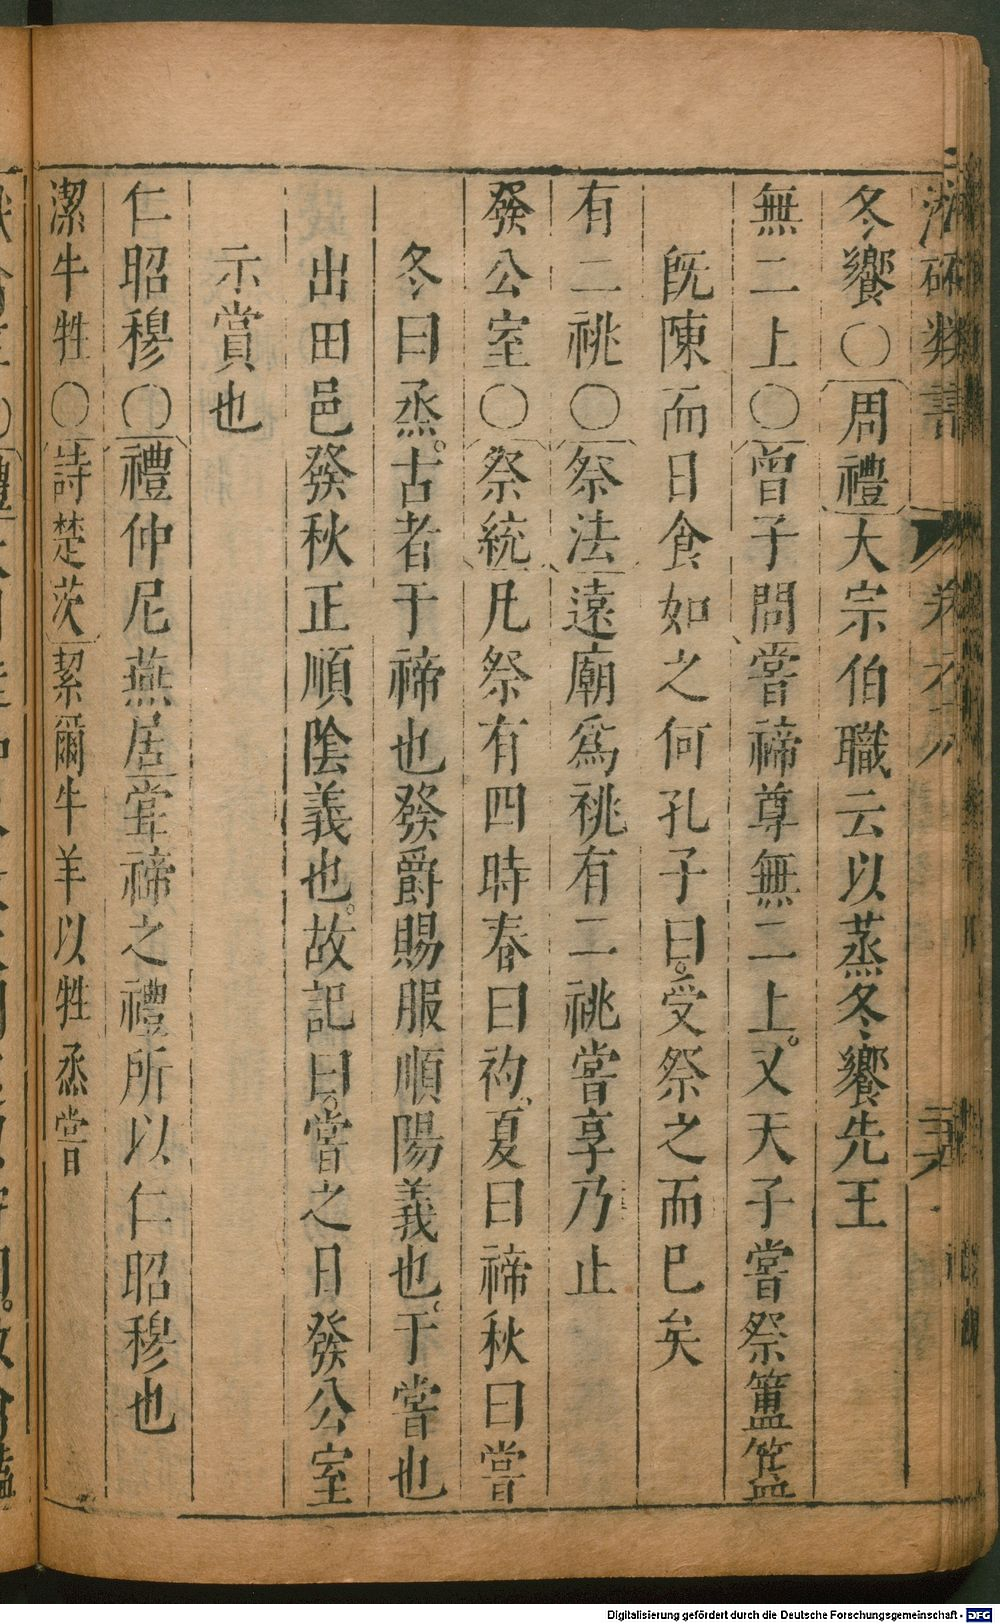 冬饗○周禮大宗伯職云以蒸冬饗先王
無二上○曾子問嘗禘尊無二上。又天子嘗祭簠簋
既陳而日食如之何孔子曰。受祭之而已矣
有二祧○祭法遠廟爲祧有二祧嘗享乃止
發公室○祭統凡祭有四時春曰礿、夏曰禘秋曰嘗
冬曰烝。古者于禘也發爵賜服順陽義也、于嘗也
出田邑發秋正順陰義也。故記曰。嘗之日發公室
示賞也
仁昭穆○禮仲尼燕居嘗禘之禮所以仁昭穆也
潔牛牲○詩楚茨絜爾牛羊以牲烝嘗
Digitalisierung gefördert durch die Deutsche Forschungsgemeinschaft - DFG